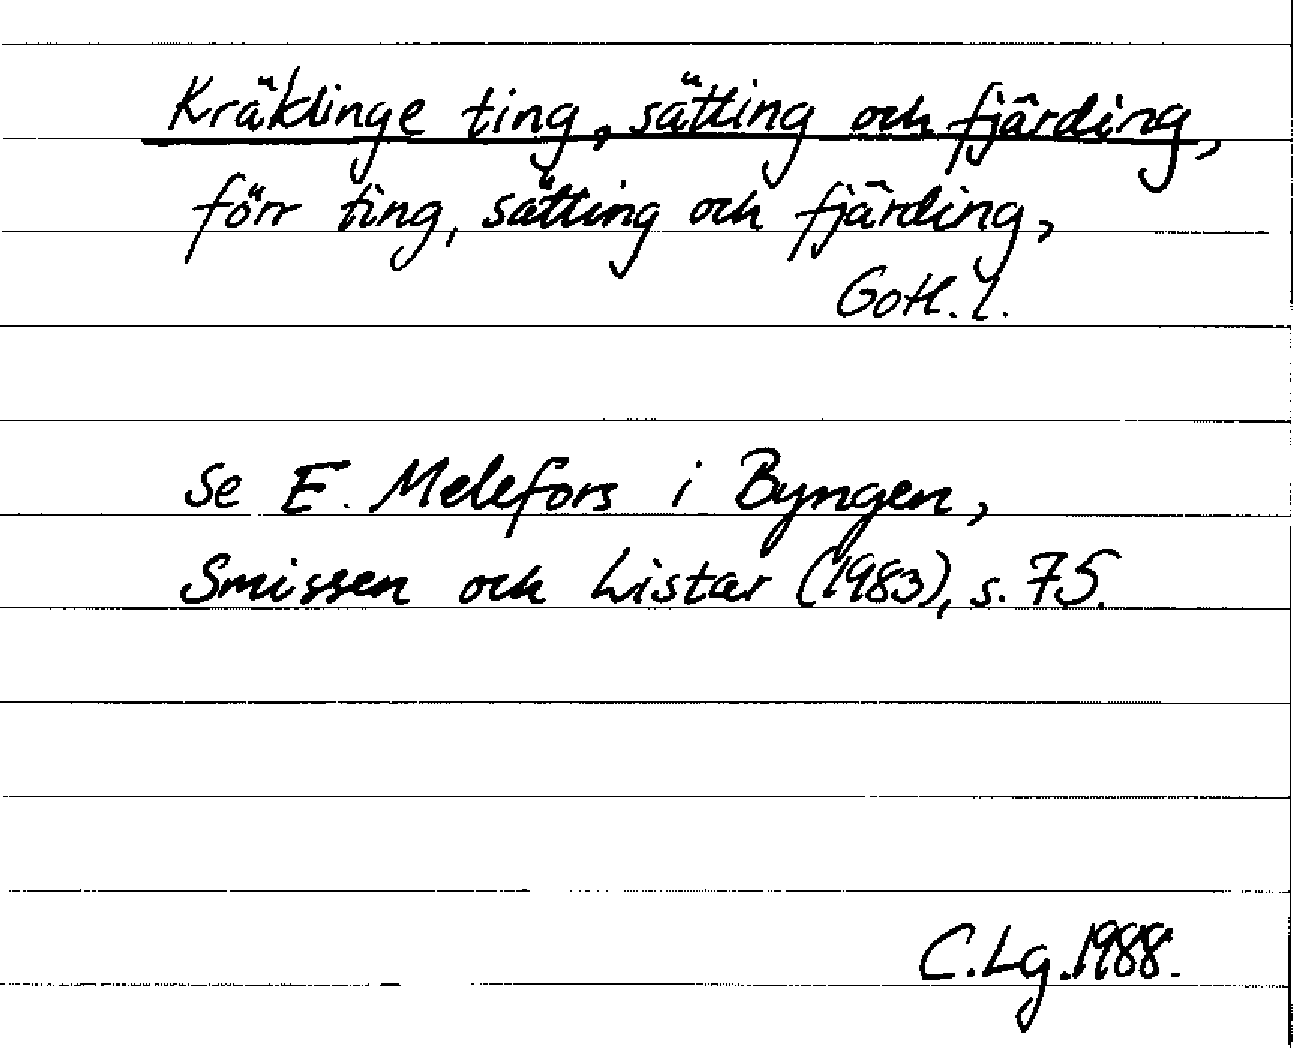 Kräklinge ting, sätting och fjärding,
förr ting, sätting och fjärding,
Gotl. l.
Se E. Melefors i Byngen,
Smissen och Listar (1983), s. 75.
C.Lg.1988.